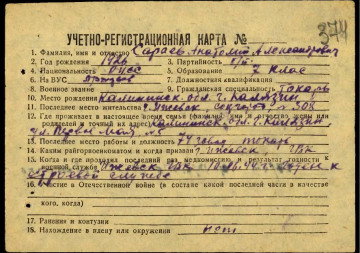 374
УЧЕТНО-РЕГИСТРАЦИОННАЯ КАРТА №
1. Фамилия, имя и отчество Сараев Анатолий Александрович
2. Год рождения 1926 3. Партийность б/п
4. Национальность русс 5. Образование 7 клас
6. На ВУС 7. Должностная квалификация
8. Военное звание 9. Гражданская специальность токарь
10. Место рождения Калининск. обл. г. Калязин
11. Последнее место жительства г. Ижевск
12. Где проживает в настоящее время семья (фамилия, имя и отчество жены или
родителей и точный их адрес) Калининск. обл. г. Калязин
ул. Первое Мая
13. Последнее место работы и должность 74 завод токарь
14. Каким райгорвоенкоматом и когда призван г. Ижевск
15. Когда и где проходил последний раз медкомиссию и результат годности к
военной службе Ижевск годен к
строевой службе
16. Участие в Отечественной войне (в составе какой последней части в качестве
кого, когда)
17. Ранения и контузии
18. Нахождение в плену или окружении нет